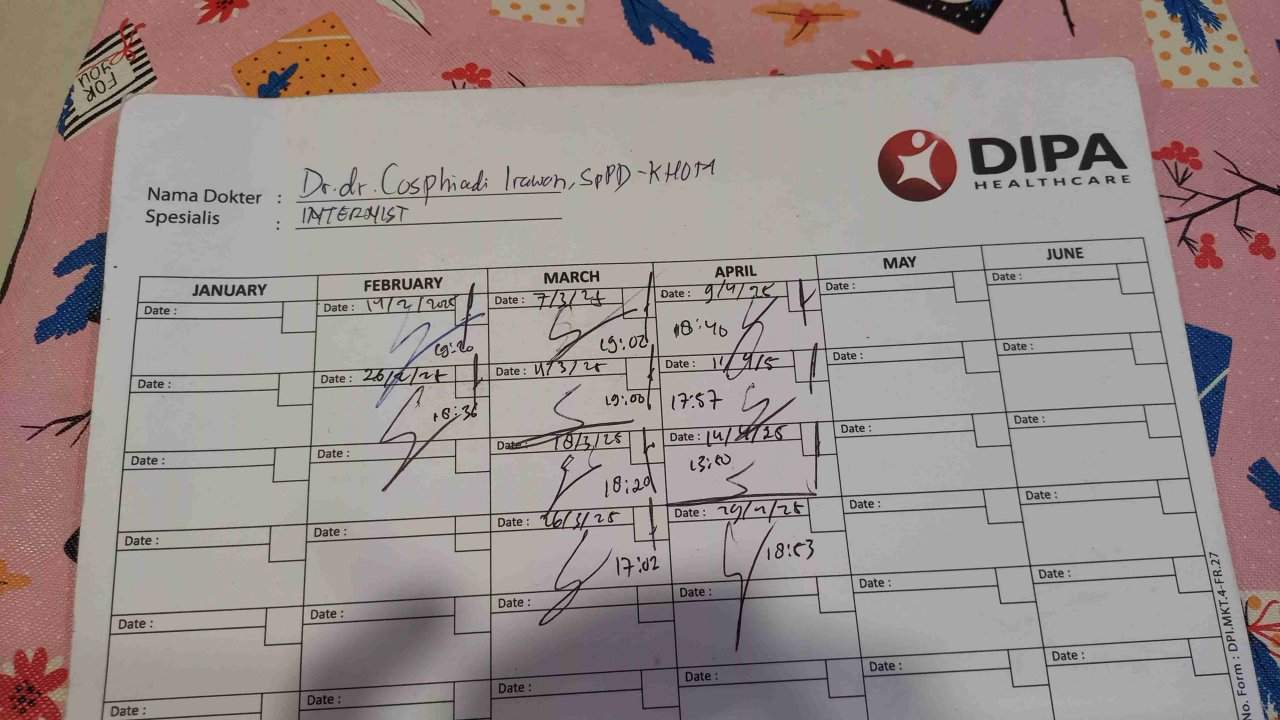 FOR
YOU
DIPA
HEALTHCARE
Nama Dokter : Dr. dr. Cosphiadi Irawan, SpPD-KHOM
Spesialis : INTERNIST
JANUARY FEBRUARY MARCH APRIL MAY JUNE
Date : Date : 19/2/2025 Date : 7/3/25 Date : 9/4/25 Date : Date :
19:20 19:02 18:40
Date : Date : 26/2/25 Date : 11/3/25 Date : 11/4/5 Date : Date :
18:36 19:00 17:57
Date : Date : Date : 18/3/25 Date : 14/4/25 Date : Date :
18:20 13:50
Date : Date : Date : 26/3/25 Date : 29/4/25 Date : Date :
17:02 18:53
Date : Date : Date : Date : Date : Date :
Date : Date : Date : Date : Date : Date :
No. Form : DPI.MKT.4-FR.27